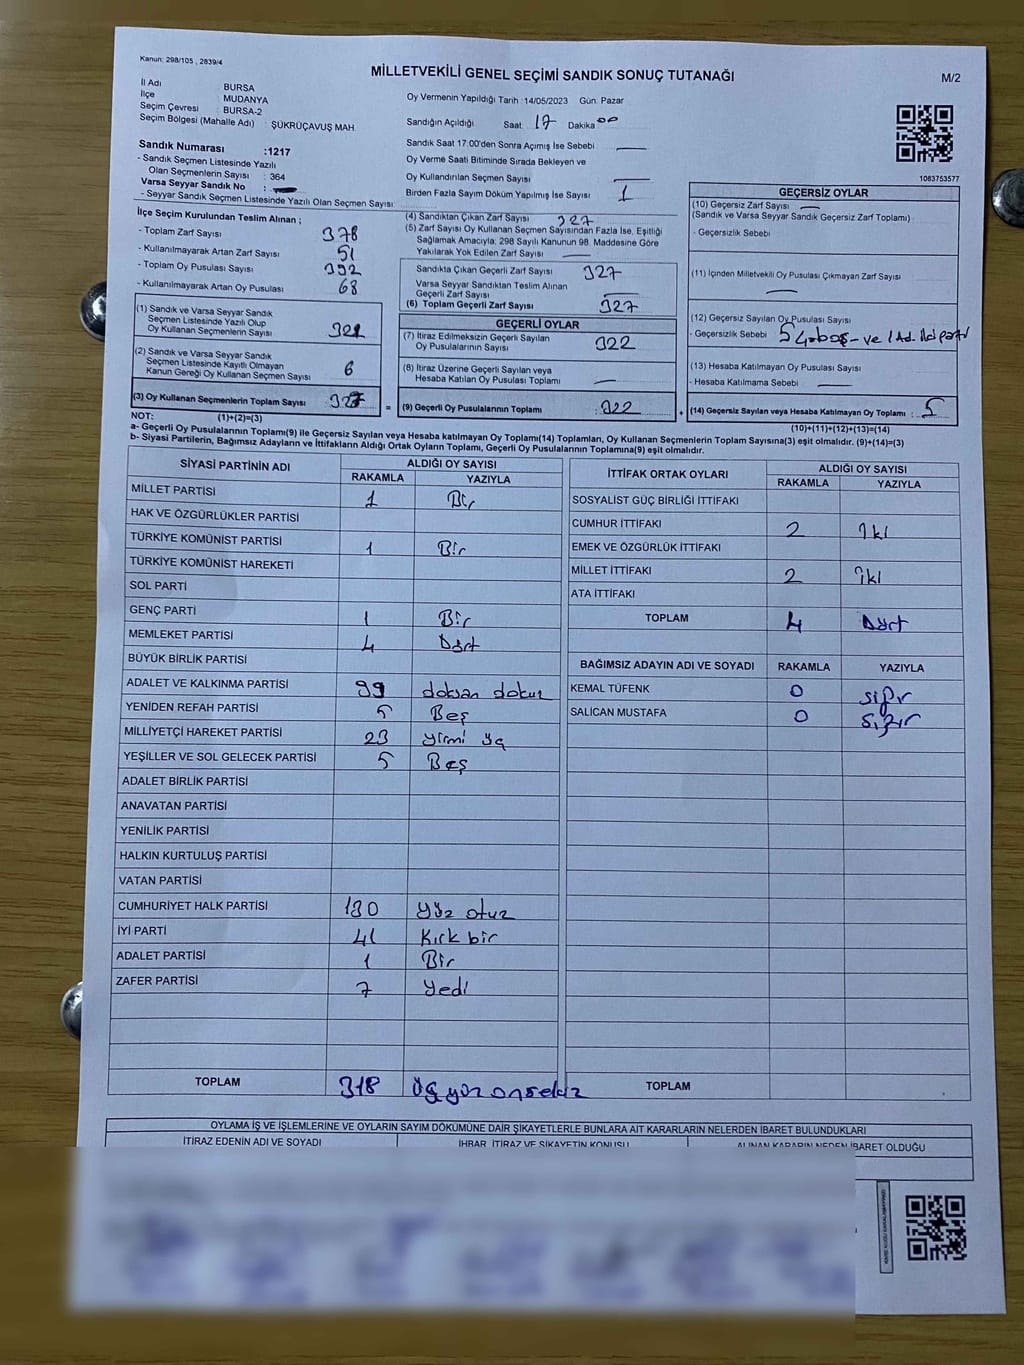 Kanun: 298/105 , 2839/4
MİLLETVEKİLİ GENEL SEÇİMİ SANDIK SONUÇ TUTANAĞI
M/2
İl Adı : BURSA
İlçe : MUDANYA
Seçim Çevresi : BURSA-2
Seçim Bölgesi (Mahalle Adı) : ŞÜKRÜÇAVUŞ MAH
Sandık Numarası :1217
- Sandık Seçmen Listesinde Yazılı
Olan Seçmenlerin Sayısı : 364
Varsa Seyyar Sandık No :
- Seyyar Sandık Seçmen Listesinde Yazılı Olan Seçmen Sayısı:
Oy Vermenin Yapıldığı Tarih :14/05/2023 Gün: Pazar
Sandığın Açıldığı Saat: 17 Dakika 00
Sandık Saat 17.00'den Sonra Açımış İse Sebebi
Oy Verme Saati Bitiminde Sırada Bekleyen ve
Oy Kullandırılan Seçmen Sayısı
Birden Fazla Sayım Döküm Yapılmış İse Sayısı 1
1083753577
İlçe Seçim Kurulundan Teslim Alınan ;
- Toplam Zarf Sayısı 378
- Kullanılmayarak Artan Zarf Sayısı 51
- Toplam Oy Pusulası Sayısı 392
- Kullanılmayarak Artan Oy Pusulası 68
(1) Sandık ve Varsa Seyyar Sandık
Seçmen Listesinde Yazılı Olup
Oy Kullanan Seçmenlerin Sayısı 321
(2) Sandık ve Varsa Seyyar Sandık
Seçmen Listesinde Kayıtlı Olmayan
Kanun Gereği Oy Kullanan Seçmen Sayısı 6
(3) Oy Kullanan Seçmenlerin Toplam Sayısı 327
(4) Sandıktan Çıkan Zarf Sayısı 327
(5) Zarf Sayısı Oy Kullanan Seçmen Sayısından Fazla İse, Eşitliği
Sağlamak Amacıyla; 298 Sayılı Kanunun 98. Maddesine Göre
Yakılarak Yok Edilen Zarf Sayısı
Sandıkta Çıkan Geçerli Zarf Sayısı 327
Varsa Seyyar Sandıktan Teslim Alınan
Geçerli Zarf Sayısı
(6) Toplam Geçerli Zarf Sayısı 327
GEÇERLİ OYLAR
(7) İtiraz Edilmeksizin Geçerli Sayılan
Oy Pusulalarının Sayısı 322
(8) İtiraz Üzerine Geçerli Sayılan veya
Hesaba Katılan Oy Pusulası Toplamı
= (9) Geçerli Oy Pusulalarının Toplamı : 322
GEÇERSİZ OYLAR
(10) Geçersiz Zarf Sayısı
(Sandık ve Varsa Seyyar Sandık Geçersiz Zarf Toplamı)
- Geçersizlik Sebebi
(11) İçinden Milletvekili Oy Pusulası Çıkmayan Zarf Sayısı
(12) Geçersiz Sayılan Oy Pusulası Sayısı
- Geçersizlik Sebebi 5
(13) Hesaba Katılmayan Oy Pusulası Sayısı
- Hesaba Katılmama Sebebi
+ (14) Geçersiz Sayılan veya Hesaba Katılmayan Oy Toplamı : 5
NOT: (1)+(2)=(3)
(10)+(11)+(12)+(13)=(14)
a- Geçerli Oy Pusulalarının Toplamı(9) ile Geçersiz Sayılan veya Hesaba katılmayan Oy Toplamı(14) Toplamları, Oy Kullanan Seçmenlerin Toplam Sayısına(3) eşit olmalıdır. (9)+(14)=(3)
b- Siyasi Partilerin, Bağımsız Adayların ve İttifakların Aldığı Ortak Oyların Toplamı, Geçerli Oy Pusulalarının Toplamına(9) eşit olmalıdır.
SİYASİ PARTİNİN ADI ALDIĞI OY SAYISI
RAKAMLA YAZIYLA
MİLLET PARTİSİ 1 Bir
HAK VE ÖZGÜRLÜKLER PARTİSİ
TÜRKİYE KOMÜNİST PARTİSİ 1 Bir
TÜRKİYE KOMÜNİST HAREKETİ
SOL PARTİ
GENÇ PARTİ 1 Bir
MEMLEKET PARTİSİ 4 Dört
BÜYÜK BİRLİK PARTİSİ
ADALET VE KALKINMA PARTİSİ 99 doksan dokuz
YENİDEN REFAH PARTİSİ 5 Beş
MİLLİYETÇİ HAREKET PARTİSİ 23 yirmi üç
YEŞİLLER VE SOL GELECEK PARTİSİ 5 Beş
ADALET BİRLİK PARTİSİ
ANAVATAN PARTİSİ
YENİLİK PARTİSİ
HALKIN KURTULUŞ PARTİSİ
VATAN PARTİSİ
CUMHURİYET HALK PARTİSİ 130 yüz otuz
İYİ PARTİ 41 Kırk bir
ADALET PARTİSİ 1 Bir
ZAFER PARTİSİ 7 Yedi
TOPLAM 318 üç yüz onsekiz
İTTİFAK ORTAK OYLARI ALDIĞI OY SAYISI
RAKAMLA YAZIYLA
SOSYALİST GÜÇ BİRLİĞİ İTTİFAKI
CUMHUR İTTİFAKI 2 İki
EMEK VE ÖZGÜRLÜK İTTİFAKI
MİLLET İTTİFAKI 2 iki
ATA İTTİFAKI
TOPLAM 4 Dört
BAĞIMSIZ ADAYIN ADI VE SOYADI RAKAMLA YAZIYLA
KEMAL TÜFENK 0 sıfır
SALİCAN MUSTAFA 0 sıfır
TOPLAM
OYLAMA İŞ VE İŞLEMLERİNE VE OYLARIN SAYIM DÖKÜMÜNE DAİR ŞİKAYETLERLE BUNLARA AİT KARARLARIN NELERDEN İBARET BULUNDUKLARI
İTİRAZ EDENİN ADI VE SOYADI İHBAR, İTİRAZ VE ŞİKAYETİN KONUSU ALINAN KARARIN NEDEN İBARET OLDUĞU